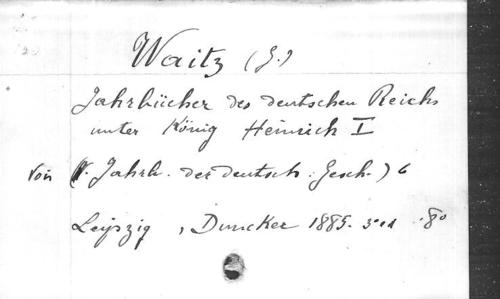 Waitz (G.)
Jahrbücher des deutschen Reichs
unter König Heinrich I
Von (V. Jahrb. der deutsch. Gesch.) 6
Leipzig, Duncker 1885. 3ed. 8o